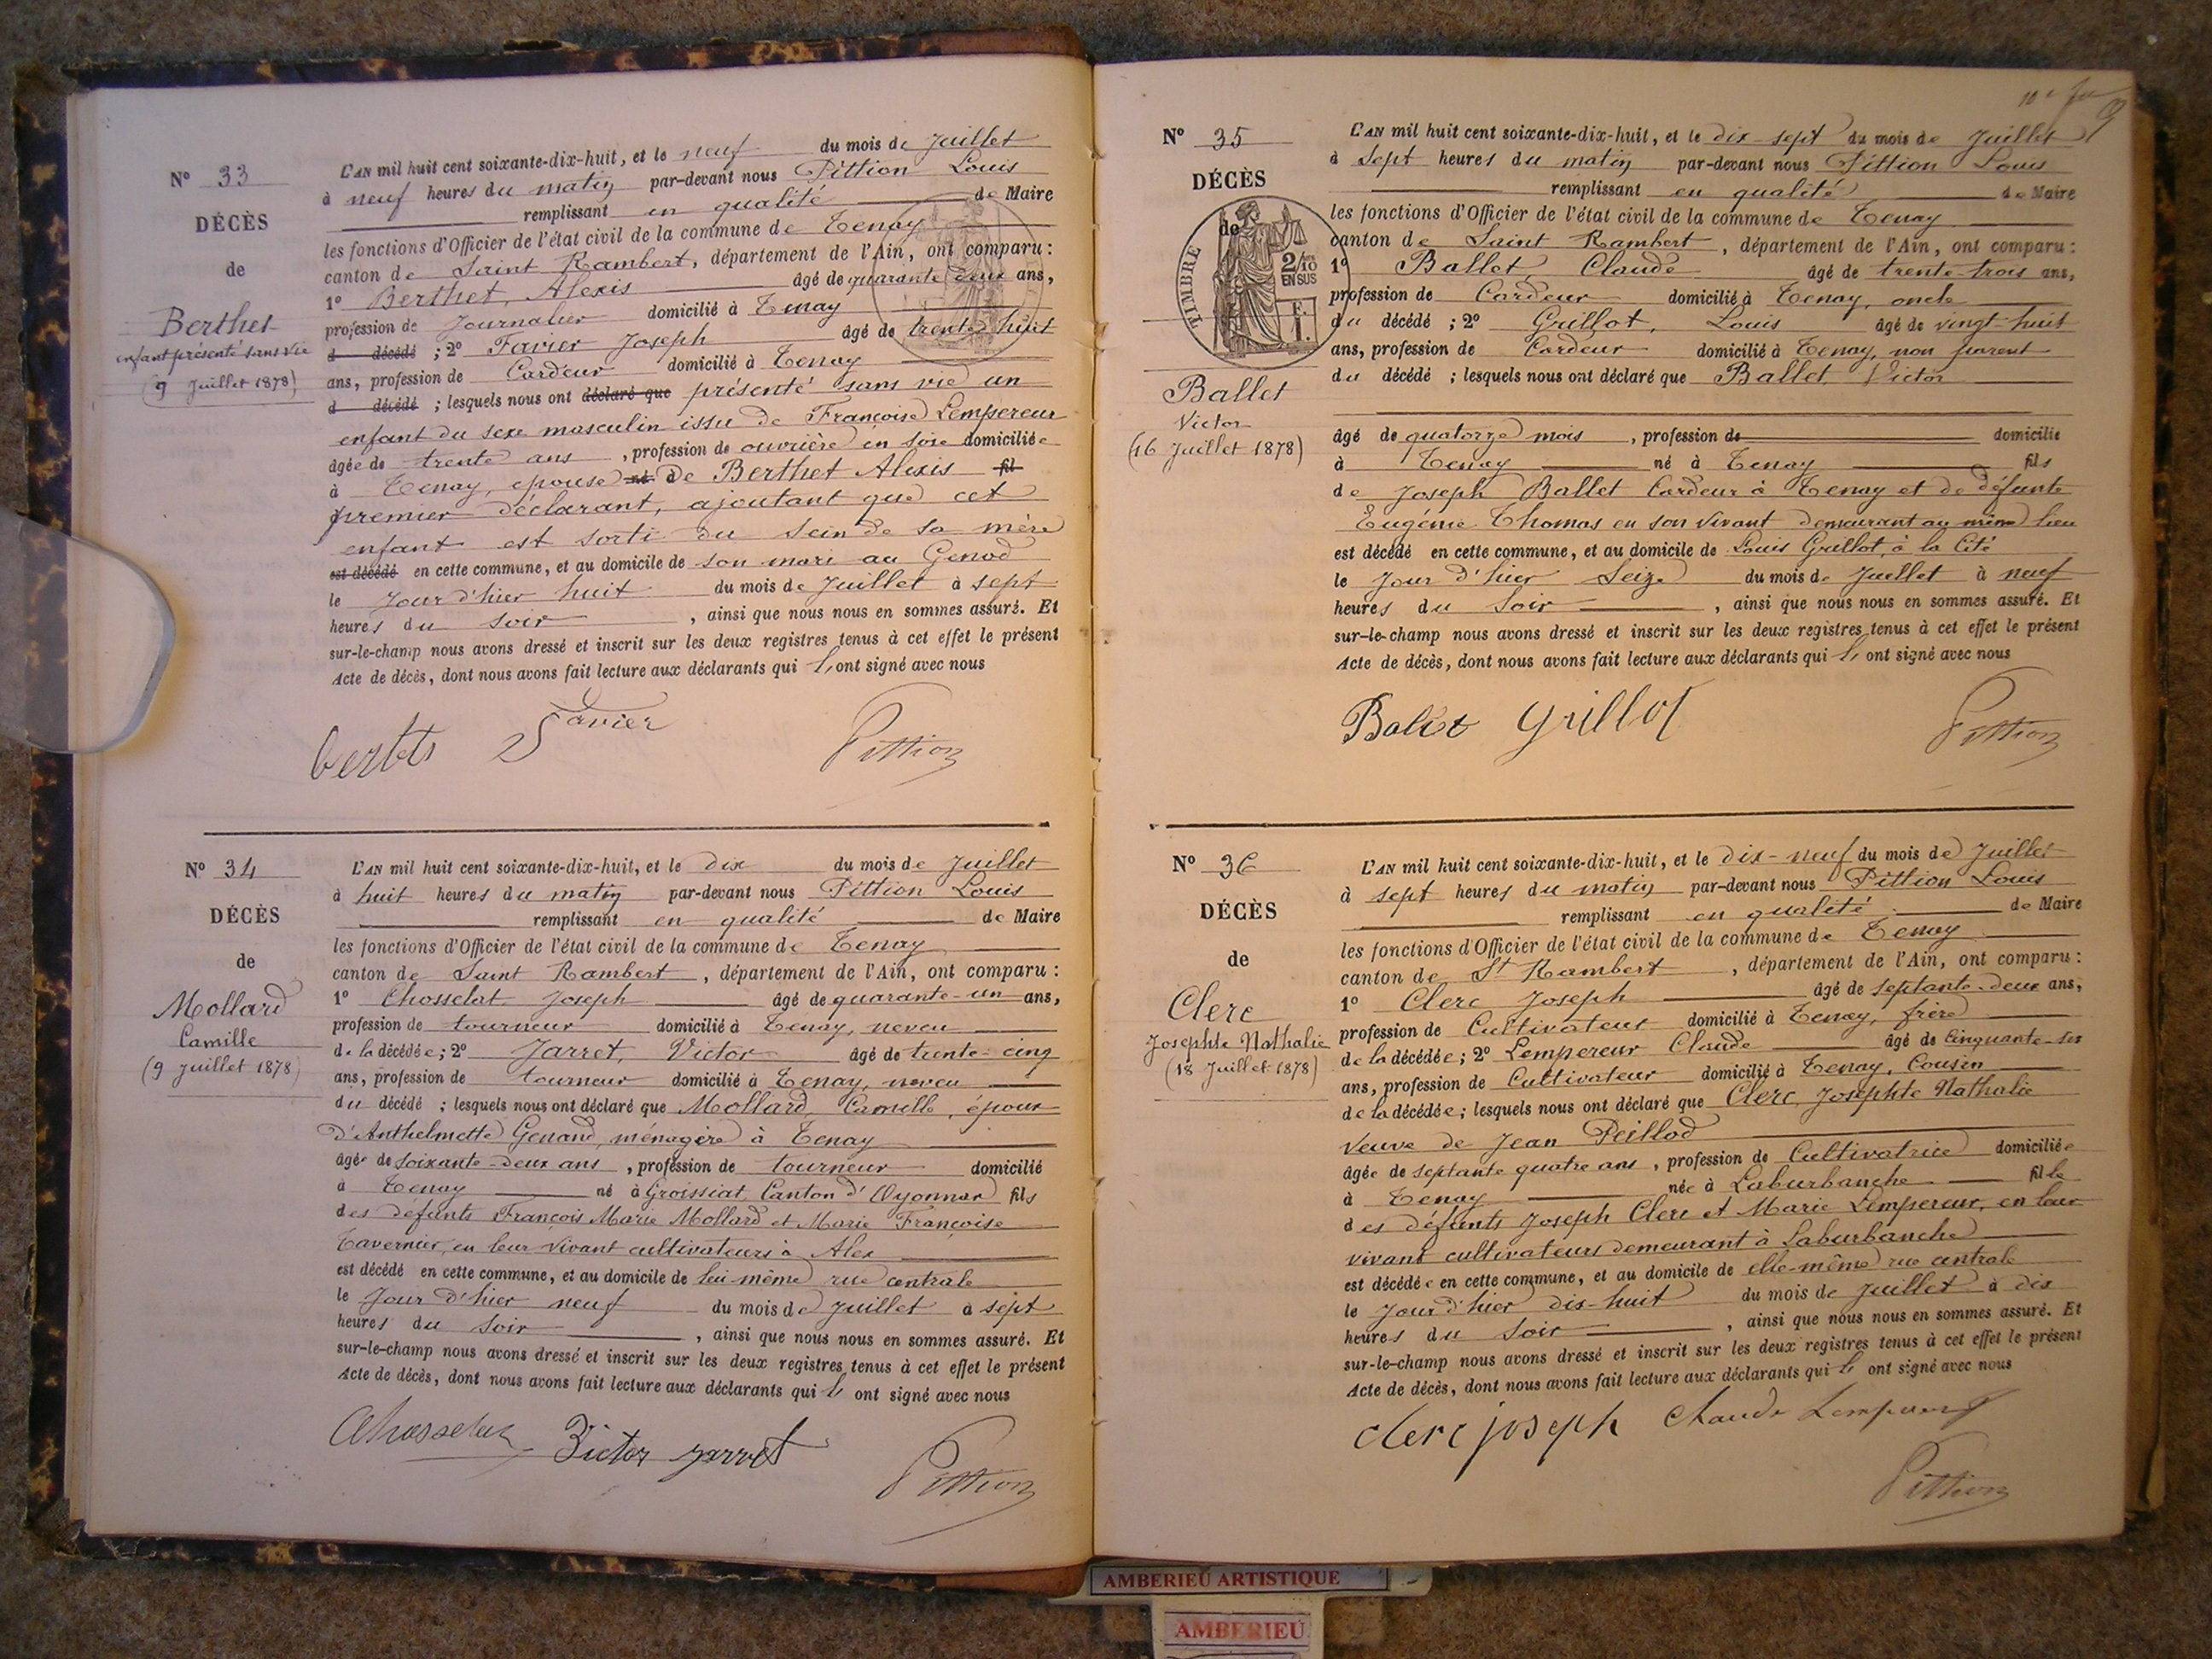 N° 33
DÉCÈS
de
Berthet
enfant présenté sans vie
(9 Juillet 1878)
L'AN mil huit cent soixante-dix-huit, et le neuf du mois de Juillet
à neuf heures du matin par-devant nous Pittion Louis
remplissant en qualité de Maire
les fonctions d'Officier de l'état civil de la commune de Tenay
canton de Saint Rambert, département de l'Ain, ont comparu :
1° Berthet, Alexis âgé de quarante deux ans,
profession de Journalier domicilié à Tenay
d décédé ; 2° Favier Joseph âgé de trente huit
ans, profession de Cardeur domicilié à Tenay
d décédé ; lesquels nous ont déclaré que présenté sans vie un
enfant du sexe masculin issu de Françoise Lempereur
âgée de trente ans, profession de ouvrière en soie domiciliée
à Tenay, épouse né de Berthet Alexis fil
premier déclarant, ajoutant que cet
enfant est sorti du sein de sa mère
est décédé en cette commune, et au domicile de son mari au Genod
le Jour d'hier huit du mois de Juillet à sept
heures du soir, ainsi que nous nous en sommes assuré. Et
sur-le-champ nous avons dressé et inscrit sur les deux registres tenus à cet effet le présent
Acte de décès, dont nous avons fait lecture aux déclarants qui l'ont signé avec nous
Favier
Pittion
N° 34
DÉCÈS
de
Mollard
Camille
(9 Juillet 1878)
L'AN mil huit cent soixante-dix-huit, et le dix du mois de Juillet
à huit heures du matin par-devant nous Pittion Louis
remplissant en qualité de Maire
les fonctions d'Officier de l'état civil de la commune de Tenay
canton de Saint Rambert, département de l'Ain, ont comparu :
1° Chosselat Joseph âgé de quarante-un ans,
profession de tourneur domicilié à Tenay, neveu
de la décédée ; 2° Jarret, Victor âgé de trente-cinq
ans, profession de tourneur domicilié à Tenay, neveu
du décédé ; lesquels nous ont déclaré que Mollard, Camille, époux
d'Anthelmette Genand, ménagère à Tenay
âgé de soixante-deux ans, profession de tourneur domicilié
à Tenay né à Groissiat, Canton d'Oyonnax fils
des défunts François Marie Mollard et Marie Françoise
Tavernier, en leur vivant cultivateurs à Alex
est décédé en cette commune, et au domicile de lui-même rue centrale
le Jour d'hier neuf du mois de Juillet à sept
heures du soir, ainsi que nous nous en sommes assuré. Et
sur-le-champ nous avons dressé et inscrit sur les deux registres tenus à cet effet le présent
Acte de décès, dont nous avons fait lecture aux déclarants qui l'ont signé avec nous
Chosselat Victor jarret
Pittion
9
N° 35
DÉCÈS
de
TIMBRE
2/10
EN SUS
Ballet
Victor
(16 Juillet 1878)
L'AN mil huit cent soixante-dix-huit, et le dix-sept du mois de Juillet
à Sept heures du matin par-devant nous Pittion Louis
remplissant en qualité de Maire
les fonctions d'Officier de l'état civil de la commune de Tenay
canton de Saint Rambert, département de l'Ain, ont comparu :
1° Ballet, Claude âgé de trente-trois ans,
profession de Cardeur domicilié à Tenay, oncle
du décédé ; 2° Grillot, Louis âgé de vingt-huit
ans, profession de Cardeur domicilié à Tenay, non parent
du décédé ; lesquels nous ont déclaré que Ballet Victor
âgé de quatorze mois, profession de domicilié
à Tenay né à Tenay fils
de Joseph Ballet Cardeur à Tenay et de défunte
Eugénie Thomas en son vivant demeurant au même lieu
est décédé en cette commune, et au domicile de Louis Grillot, à la Cité
le Jour d'hier Seize du mois de Juillet à neuf
heures du soir, ainsi que nous nous en sommes assuré. Et
sur-le-champ nous avons dressé et inscrit sur les deux registres tenus à cet effet le présent
Acte de décès, dont nous avons fait lecture aux déclarants qui l'ont signé avec nous
Grillot
Pittion
N° 36
DÉCÈS
de
Clerc
Josephte Nathalie
(18 Juillet 1878)
L'AN mil huit cent soixante-dix-huit, et le dix-neuf du mois de Juillet
à sept heures du matin par-devant nous Pittion Louis
remplissant en qualité de Maire
les fonctions d'Officier de l'état civil de la commune de Tenay
canton de St Rambert, département de l'Ain, ont comparu :
1° Clerc Joseph âgé de septante-deux ans,
profession de Cultivateur domicilié à Tenay, frère
de la décédée ; 2° Lempereur Claude âgé de Cinquante-six
ans, profession de Cultivateur domicilié à Tenay, Cousin
de la décédée ; lesquels nous ont déclaré que Clerc, Josephte Nathalie
veuve de Jean Peillod
âgée de septante quatre ans, profession de Cultivatrice domiciliée
à Tenay née à Laburbanche fille
des défunts Joseph Clerc et Marie Lempereur, en leur
vivant cultivateurs demeurant à Laburbanche
est décédée en cette commune, et au domicile de elle-même rue centrale
le Jour d'hier dix-huit du mois de Juillet à dix
heures du soir, ainsi que nous nous en sommes assuré. Et
sur-le-champ nous avons dressé et inscrit sur les deux registres tenus à cet effet le présent
Acte de décès, dont nous avons fait lecture aux déclarants qui l'ont signé avec nous
clerc joseph Claude Lempereur
Pittion
AMBERIEU ARTISTIQUE
AMBERIEU